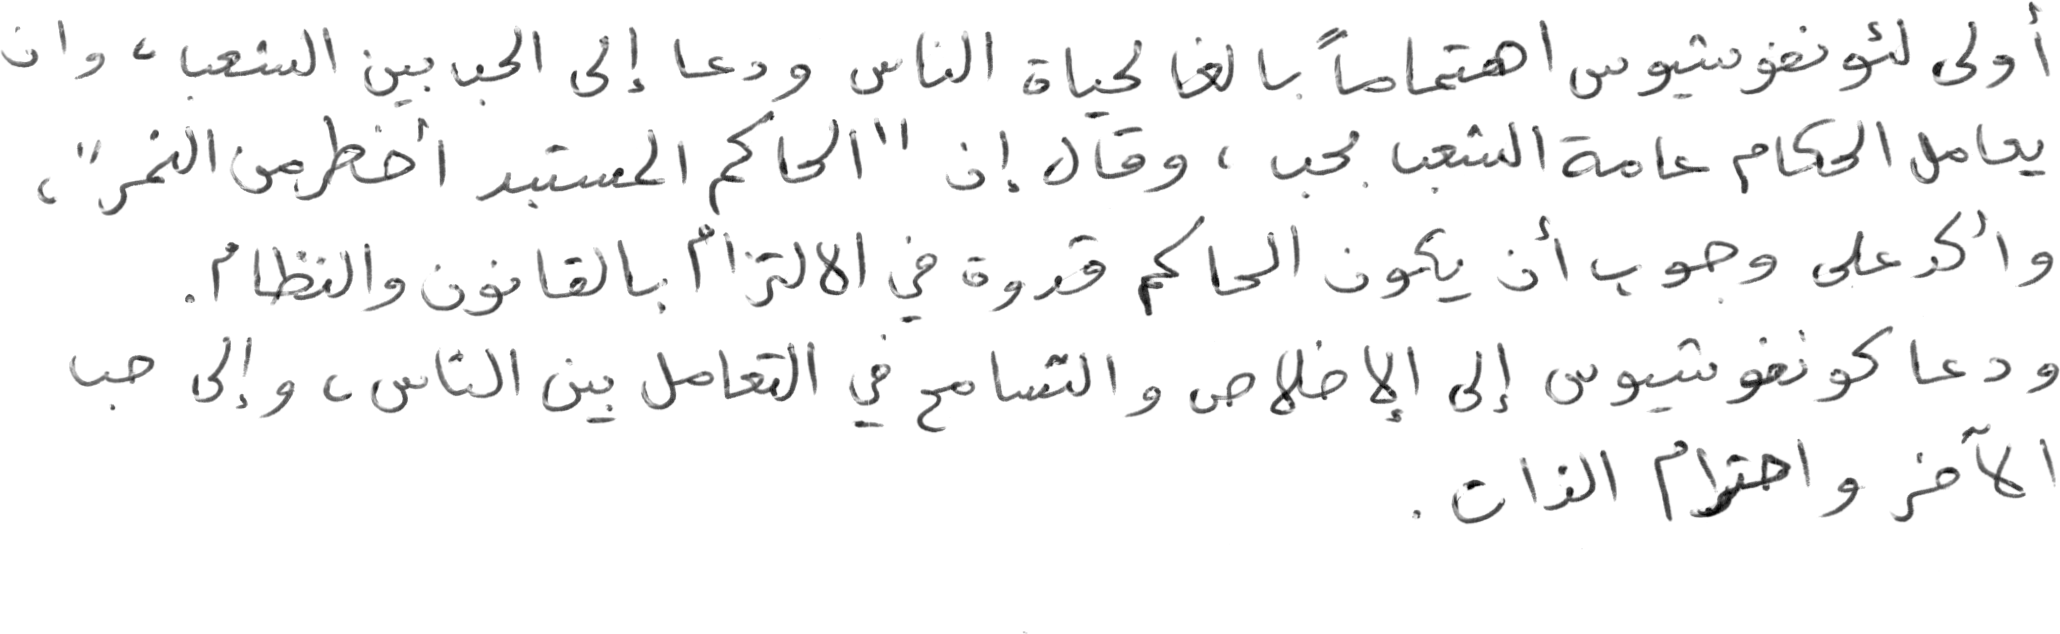 أولى لئونفوشيوس اهتماماً بالغا لحياة الناس ودعا إلى الحب بين الشعب، وان
يعامل الحكام عامة الشعب بحب، وقال إن "الحاكم المستبد أخطر من النمر"،
وأكد على وجوب أن يكون الحاكم قدوة في الالتزام بالقانون والنظام.
ودعا كونفوشيوس إلى الإخلاص والتسامح في التعامل بين الناس، وإلى حب
الآخر واحترام الذات.